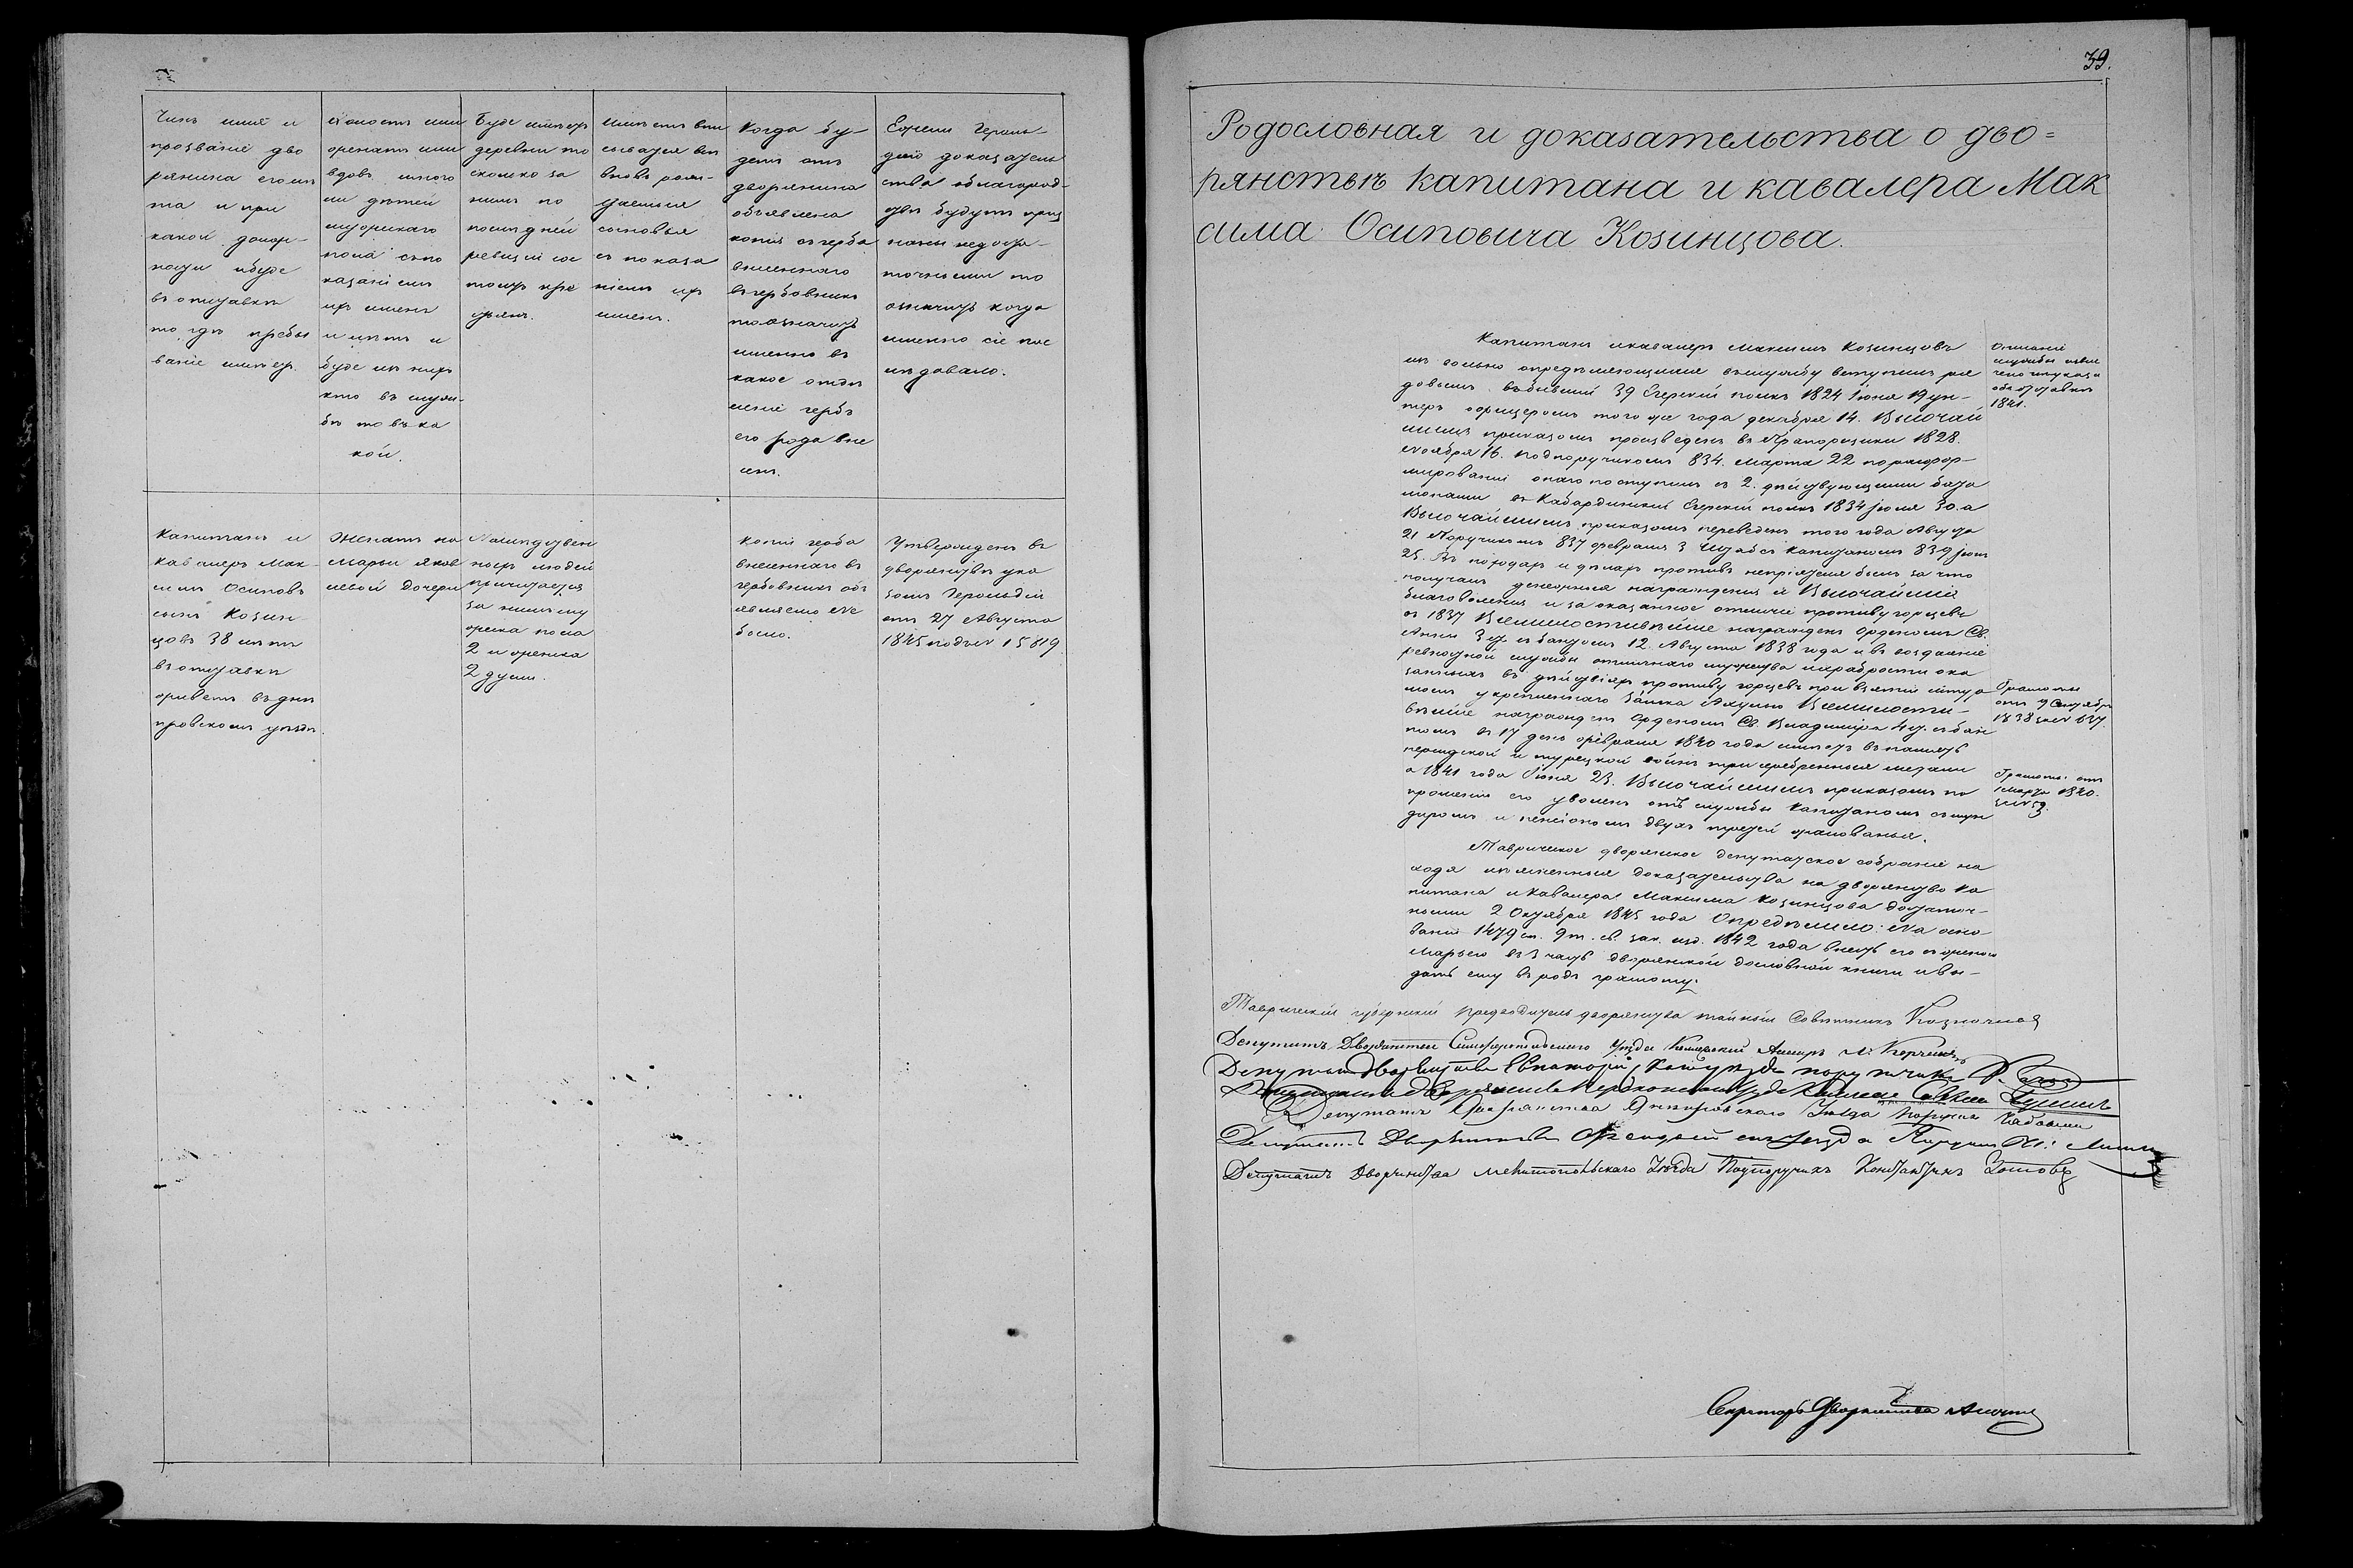 Чинъ имя и
прозваніе дво
рянина его лѣ
та и при
какой долж-
ности и буде
въ отставкѣ
то гдѣ пребы
ваніе имѣетъ.
Холостъ или
женатъ или
вдовъ много
ли дѣтей
мужскаго
пола съ по
казаніемъ
ихъ именъ
и лѣтъ и
буде изъ нихъ
кто въ служ-
бѣ то въ ка
кой.
Буде имѣетъ
деревни то
сколько за
нимъ по
послѣдней
ревизіи сос
тоитъ кре
стьянъ.
вновь рож-
даемыя
сыновья
съ показа
ніемъ ихъ
именъ.
Когда бу-
детъ отъ
дворянина
объявлена
копія съ герба
внесеннаго
въ гербовникъ
то означить
именно въ
какое отдѣ
леніе гербъ
его рода вне
сенъ.
Ежели Героль-
діею доказатель
ства о благород-
ствѣ будутъ приз
наны недоста-
точными то
означить когда
именно сіе пос
лѣдовало.
Капитанъ и
кавалеръ Мак-
симъ Осиповъ
сынъ Козин
цовъ 38 лѣтъ
въ отставкѣ
живетъ въ Днѣ
провскомъ уѣздѣ.
Женатъ на
Марьи Яков
левой дочери
наслѣдствен
ныхъ людей
причитается
за нимъ му
жеска пола
2 и женска
2 души.
Копіи герба
внесеннаго въ
гербовникъ объ
являемо не
было.
Утвержденъ въ
дворянствѣ ука
зомъ Герольдіи
отъ 27 Августа
1845 подъ № 15819
39.
Родословная и доказательства о дво=
рянствѣ капитана и кавалера Мак
сима Осиповича Козинцова.
Капитанъ и кавалеръ Максимъ Козинцовъ
изъ вольно опредѣляющихся въ службу вступилъ ря
довымъ въ бывшій 39 Егерскій полкъ 1824 Іюня 19 ун-
теръ офицеромъ того же года декабря 14. Высочай
шимъ приказомъ произведенъ въ Прапорщики 1828.
Ноября 16. подпоручикомъ 834. марта 22 по расфор-
мированіи онаго поступилъ съ 2. дѣйствующими бата
ліонами въ Кабардинскій Егерскій полкъ 1834 іюля 30. а
Высочайшимъ приказомъ переведенъ того года Августа
21 Поручикомъ 837 февраля 3 Штабсъ капитаномъ 839 іюля
25. Въ походахъ и дѣлахъ противъ непріятеля былъ за что
получалъ денежныя награжденія и Высочайшія
благоволенія и за оказанное отличіе противу горцевъ
въ 1837 Всемилостивѣйше награжденъ орденомъ Св.
Анны 3 ст. съ бантомъ 12. Августа 1838 года и въ воздаяніе
ревностной службы отличнаго мужества и храбрости ока
занныхъ въ дѣйствіяхъ противу горцевъ при взятіи штур
момъ укрѣпленнаго Замка Ахульго Всемилости-
вѣйше награжденъ Орденомъ Св. Владиміра 4 ст. съ бан
томъ въ 17 день февраля 1840 года имѣетъ въ память
персидской и турецкой войнъ три серебренныя медали
а 1841 года Іюня 23. Высочайшимъ приказомъ по
прошенію его уволенъ отъ службы капитаномъ съ мун
диромъ и пенсіономъ двухъ третей жалованья.
Таврическое дворянское депутатское собраніе на
ходя изъясненныя доказательства на дворянство ка
питана и кавалера Максима Козинцова достаточ-
ными 2 Октября 1845 года Опредѣлило: на осно
ваніи 1479 ст. 9 т. св. зак. изд. 1842 года внесть его съ женою
Марьею въ 3 часть дворянской дословной книги и вы-
дать ему въ родъ грамоту.
Описаніе
службы извле
чено изъ указа
объ отставкѣ
1841.
Грамоты
отъ 9 Сентября
1838 за № 537.
Грамоты отъ
1 марта 1840.
за № 59.
Таврическій губернскій Предводитель дворянства тайный Совѣтникъ Казначеев
Депутатъ Дворянства Симферопольскаго Уѣзда
Депутатъ Дворянства Евпаторійскаго уѣзда поручикъ
Депутатъ Дворянства Днѣпровскаго Уѣзда Поручикъ
Депутатъ Дворянства Ѳеодосійскаго Уезда
Депутатъ Дворянства Мелитопольскаго Уѣзда Подпоручикъ Константинъ
Секретарь Дворянства